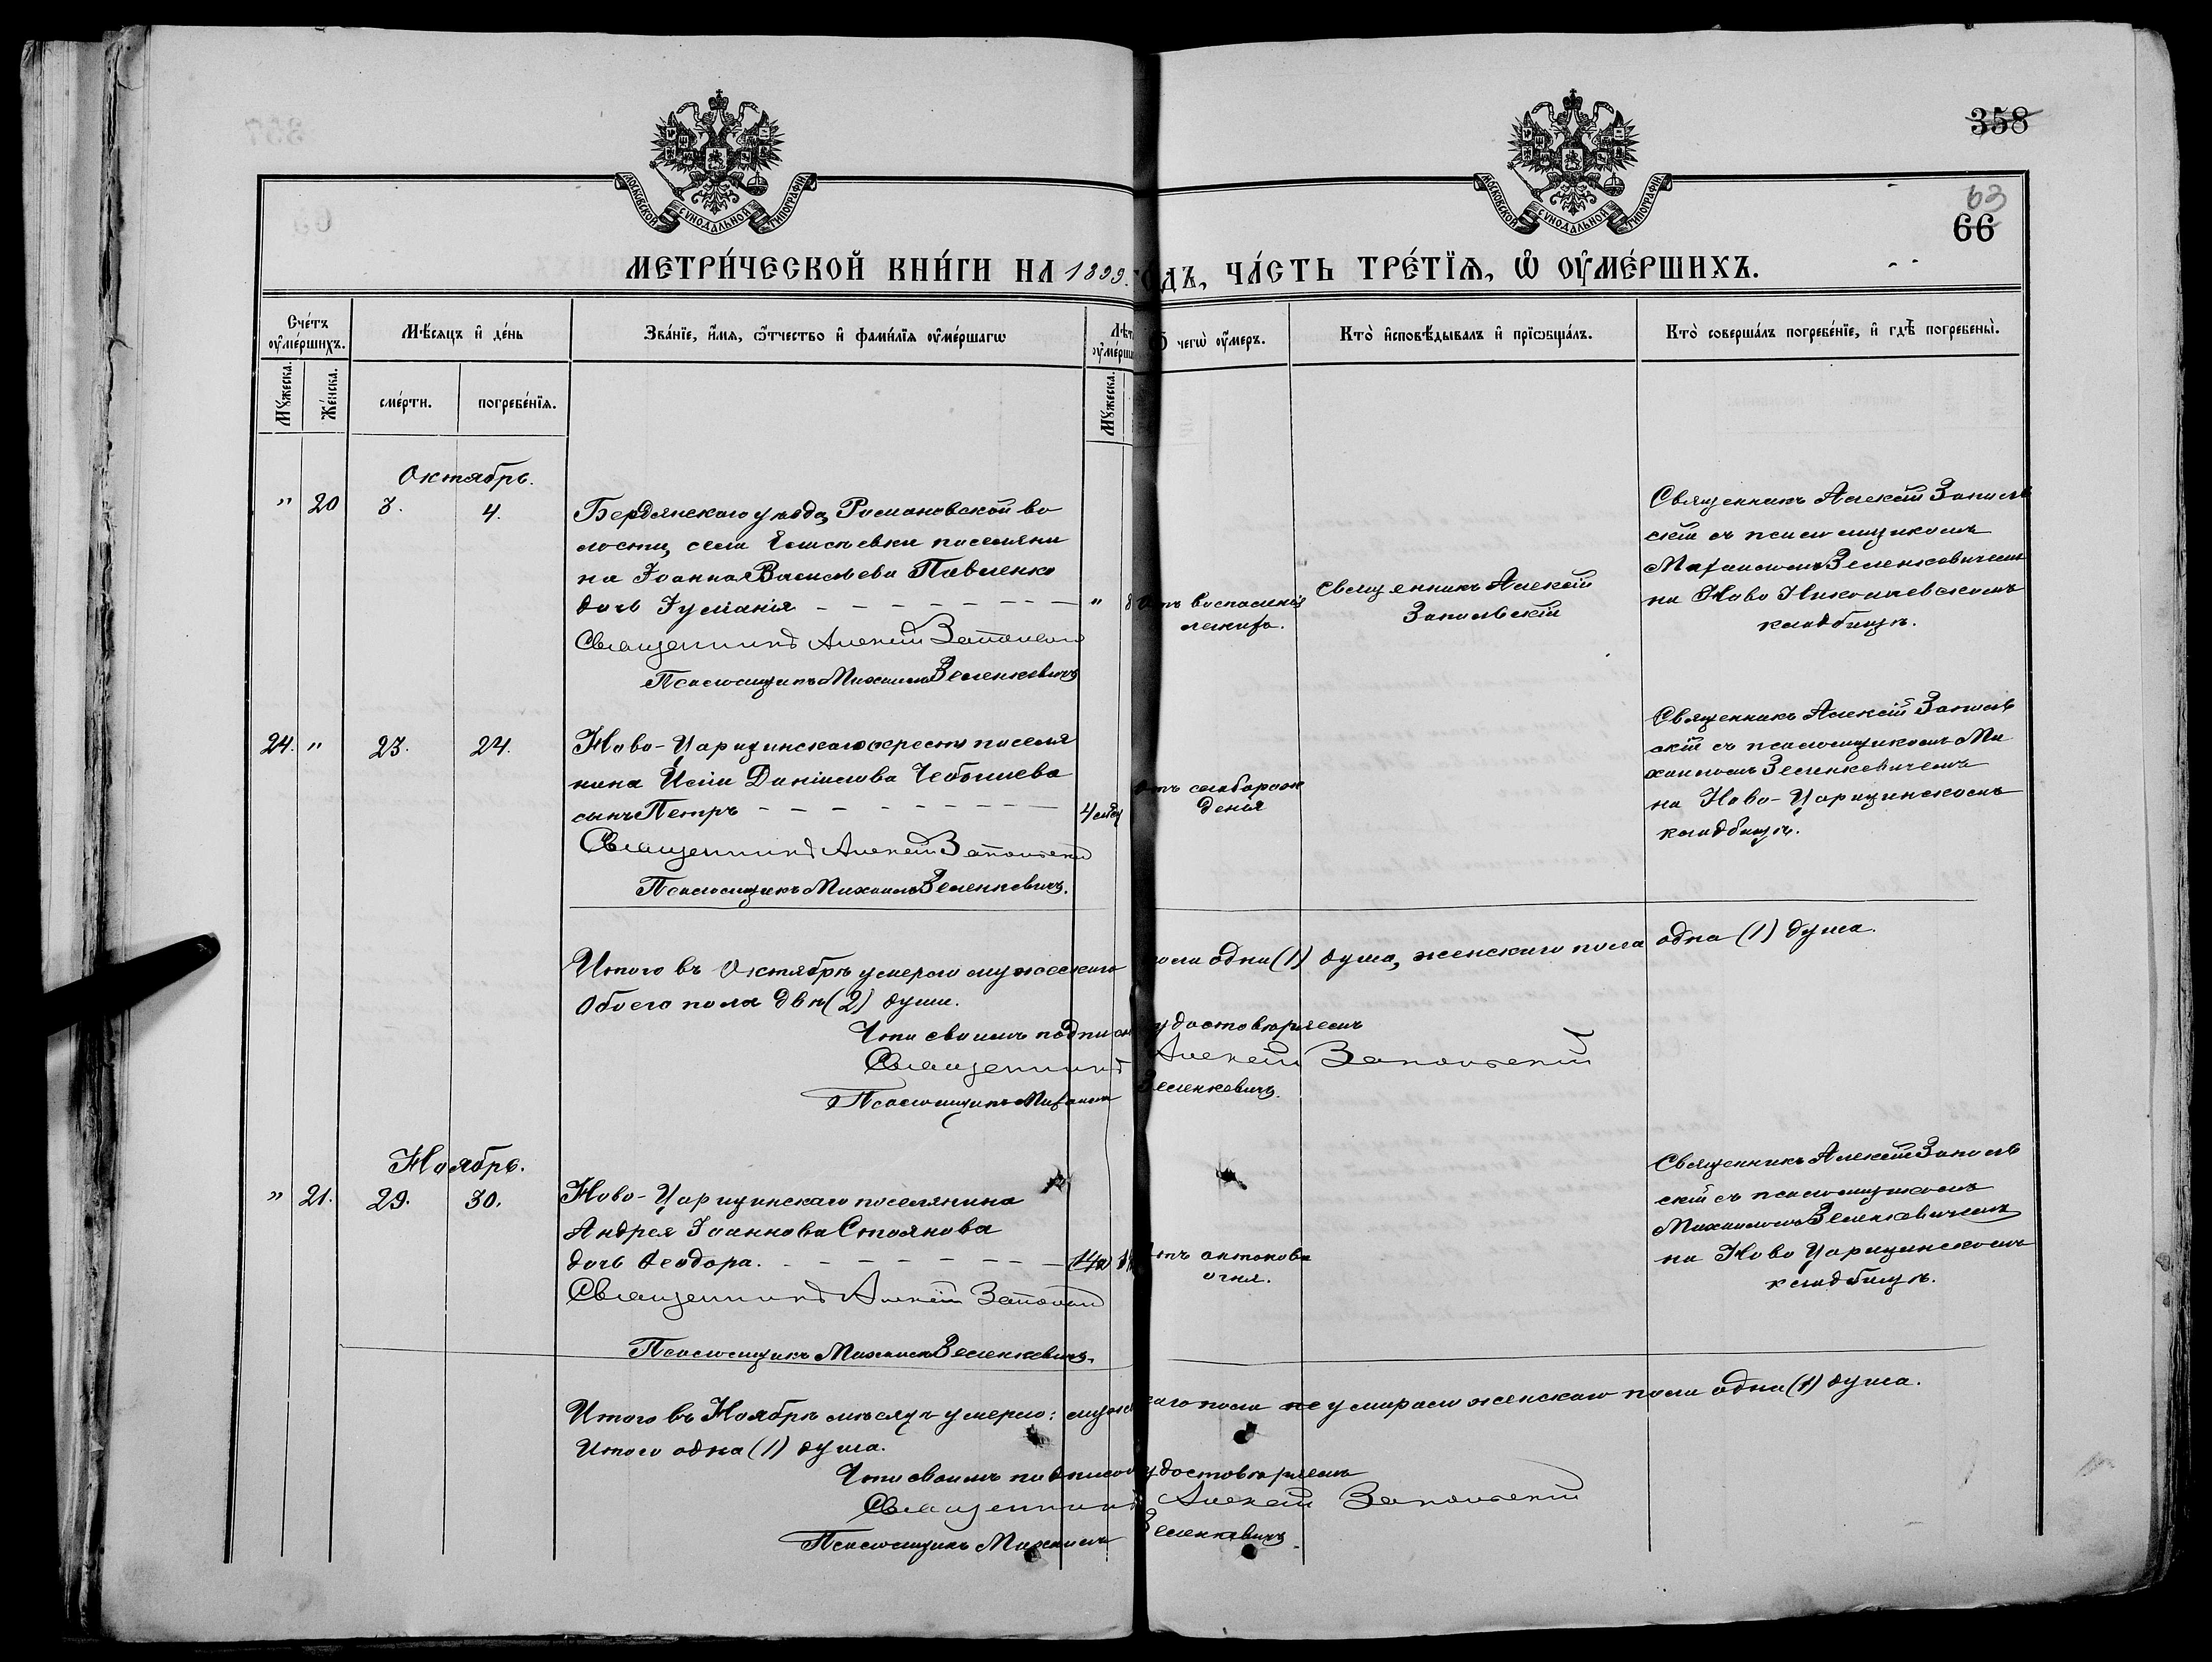 358
63
66
МОСКОВСКОЙ СѴНОДАЛЬНОЙ ТИПОГРАФІИ
МОСКОВСКОЙ СѴНОДАЛЬНОЙ ТИПОГРАФІИ
МЕТРИ́ЧЕСКОЙ КНИ́ГИ НА 1899. ГО́ДЪ, ЧА́СТЬ ТРЕ́ТЇѦ, Ѡ ОУ҆МЕ́РШИХЪ.
Сче́тъ оу҆ме́ршихъ.
Мѣ́сяцъ и҆ де́нь
Зва́нїе, и҆́мя, ѻ҆́тчество и҆ фами́лїя оу҆ме́ршагѡ
Лѣт
оу҆ме́рши
Ѿ чегѡ̀ оу҆́меръ.
Кто̀ и҆сповѣ́дывалъ и҆ прїѡбща́лъ.
Кто̀ соверша́лъ погребе́нїе, и҆ гдѣ̀ погребены̀.
Мꙋ́жеска.
Же́нска.
сме́рти.
погребе́нїя.
Мꙋ́жеска.
Октябрь.
" 20 3. 4.
Бердянскаго уѣзда, Романовской во
лости, села поселяни
на Іоанна Васильева Павленко
дочь Іуліанія " 8
Священникъ Алексій Запольскій
Псаломщикъ Михаилъ Зеленкевичъ
Отъ воспаленія
легкихъ.
Священникъ Алексій
Запольскій
Священникъ Алексій Заполь
скій съ псаломщикомъ
Михаиломъ Зеленкевичемъ
на Ново Николаевскомъ
кладбищѣ.
24. " 23. 24.
Ново-Царицинскаго поселя
нина Иліи Даніилова
сынъ Петръ 4 мѣс
Священникъ Алексій Запольскій
Псаломщикъ Михаилъ Зеленкевичъ.
Отъ слаборож
денія
Священникъ Алексій Заполь
скій съ псаломщикомъ Ми
хаиломъ Зеленкевичемъ
на Ново-Царицинскомъ
кладбищѣ.
Итого въ Октябрѣ умерло мужескаго пола одна (1) душа, женскаго пола одна (1) душа.
Обоего пола двѣ (2) души.
Что своимъ подписомъ удостовѣряемъ
Священникъ Алексій Запольскій
Псаломщикъ Михаилъ Зеленкевичъ.
Ноябрь.
" 21. 29. 30.
Ново-Царицинскаго поселянина
Андрея Іоаннова Стоянова
дочь Ѳеодора.
Священникъ Алексій Запольскій
Псаломщикъ Михаилъ Зеленкевичъ.
Отъ антонова
огня.
Священникъ Алексій Заполь
скій съ псаломщикомъ
Михаиломъ Зеленкевичемъ
на Ново Царицинскомъ
кладбищѣ.
Итого въ Ноябрѣ мѣсяцѣ умерло: мужескаго пола не умирало женскаго пола одна (1) душа.
Итого одна (1) душа.
Что своимъ подписомъ удостовѣряемъ
Священникъ Алексій Запольскій
Псаломщикъ Михаилъ Зеленкевичъ.